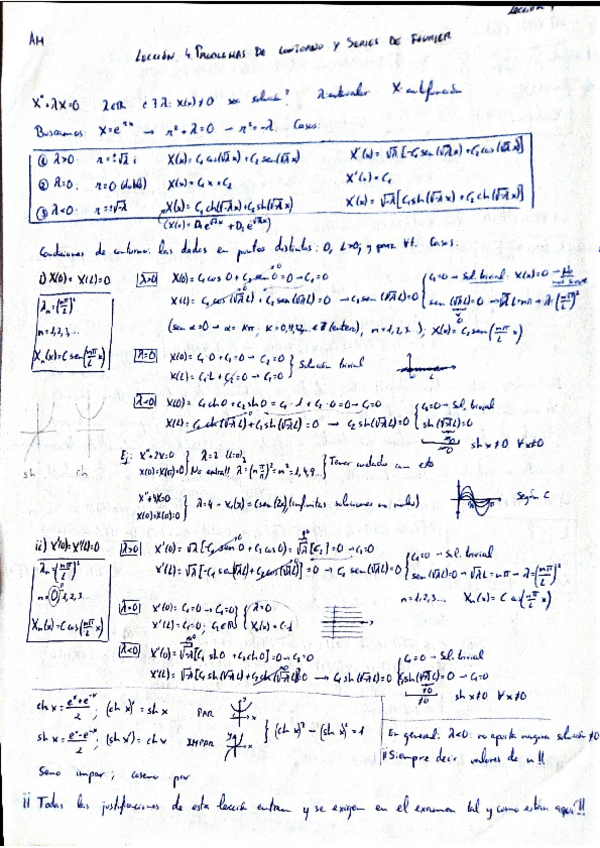 Lección 4
AM
Lección 4. Problemas de contorno y Series de Fourier
X''+λX=0 λ∈ℝ ¿∃ λ: X(x)≠0 sea solución? λ autovalor X autofunción
Buscamos: X=e^{rx} → r²+λ=0 → r²=-λ. Casos:
① λ>0: r=±√λ i X(x)=C₁cos(√λx)+C₂sen(√λx) X'(x)=√λ[-C₁sen(√λx)+C₂cos(√λx)]
② λ=0: r=0 (doble) X(x)=C₁x+C₂ X'(x)=C₁
③ λ<0: r=±√-λ X(x)=C₁ch(√-λx)+C₂sh(√-λx) X'(x)=√-λ[C₁sh(√-λx)+C₂ch(√-λx)]
(X(x)=D₁e^{√-λx}+D₂e^{-√-λx})
Condiciones de contorno: las dadas en puntos distintos: 0, L>0, y para ∀t. Casos:
i) X(0)=X(L)=0 λ>0 X(0)=C₁cos 0+C₂sen 0=0→C₁=0
C₂=0→Sol. trivial: X(x)=0→
X(L)=C₁cos(√λL)+C₂sen(√λL)=0→C₂sen(√λL)=0 sen(√λL)=0→√λL=nπ→λ=(nπ/L)²
λₙ=(nπ/L)²
n=1,2,3...
Xₙ(x)=C sen(nπ/L x)
(sen α=0→α=kπ, k=0,±1,±2... ∈ℤ (entero), n=1,2,3...); X(x)=C₂sen(nπ/L x)
λ=0 X(0)=C₁·0+C₂=0→C₂=0
X(L)=C₁·L+C₂=0→C₁=0 Solución trivial
λ<0 X(0)=C₁ch0+C₂sh0=C₁·1+C₂·0=0→C₁=0
C₂=0→Sol. trivial
X(L)=C₁ch(√-λL)+C₂sh(√-λL)=0→C₂sh(√-λL)=0 sh(√-λL)=0
≠0 sh x≠0 ∀x≠0
sh ch
Ej: X''+2X=0
X(0)=X(π)=0 λ=2 (L=π) No entra!! λ=(nπ/π)²=n²=1,4,9... Tener cuidado con esto
X''+4X=0
X(0)=X(π)=0 λ=4→X₂(x)=C sen(2x) (infinitas soluciones) Según C
ii) X'(0)=X'(L)=0 λ>0 X'(0)=√λ[-C₁sen 0+C₂cos 0]=√λ[C₂]=0→C₂=0
C₁=0→Sol. trivial
X'(L)=√λ[-C₁sen(√λL)+C₂cos(√λL)]=0→C₁sen(√λL)=0 sen(√λL)=0→√λL=nπ→λ=(nπ/L)²
λₙ=(nπ/L)²
n=0,1,2,3...
Xₙ(x)=C cos(nπ/L x)
n=1,2,3... Xₙ(x)=C cos(nπ/L x)
λ=0 X'(0)=C₁=0→C₁=0
X'(L)=C₁=0; C₂∈ℝ λ=0 X₀(x)=C·1
λ<0 X'(0)=√-λ[C₁sh0+C₂ch0]=0→C₂=0
C₁=0→Sol. trivial
X'(L)=√-λ[C₁sh(√-λL)+C₂ch(√-λL)]=0→C₁sh(√-λL)=0 sh(√-λL)=0→C₁=0
≠0 sh x≠0 ∀x≠0
ch x=(e^x+e^{-x})/2; (ch x)'=sh x PAR
sh x=(e^x-e^{-x})/2; (sh x)'=ch x IMPAR (ch x)²-(sh x)²=1
En general: λ<0: no aporta ninguna solución ≠0
¡¡Siempre decir valores de n!!
Seno impar; coseno par
¡¡ Todas las justificaciones de esta lección entran y se exigen en el examen tal y como están aquí!!